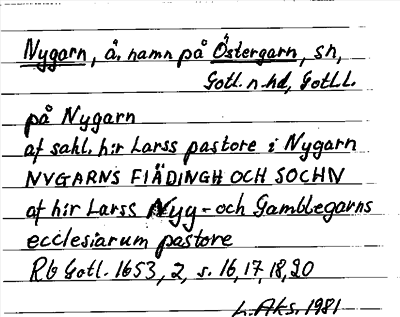 Nygarn, å. namn på Östergarn, sn,
Gotl. n. hd, Gotl.l.
på Nygarn
af sahl. hir Larss pastore i Nygarn
NYGARNS FIÄDINGH OCH SOCHN
af hir Larss Nyg- och Gamblegarns
ecclesiarum pastore
Rb Gotl. 1653, 2, s. 16, 17, 18, 20
L. Aks. 1981